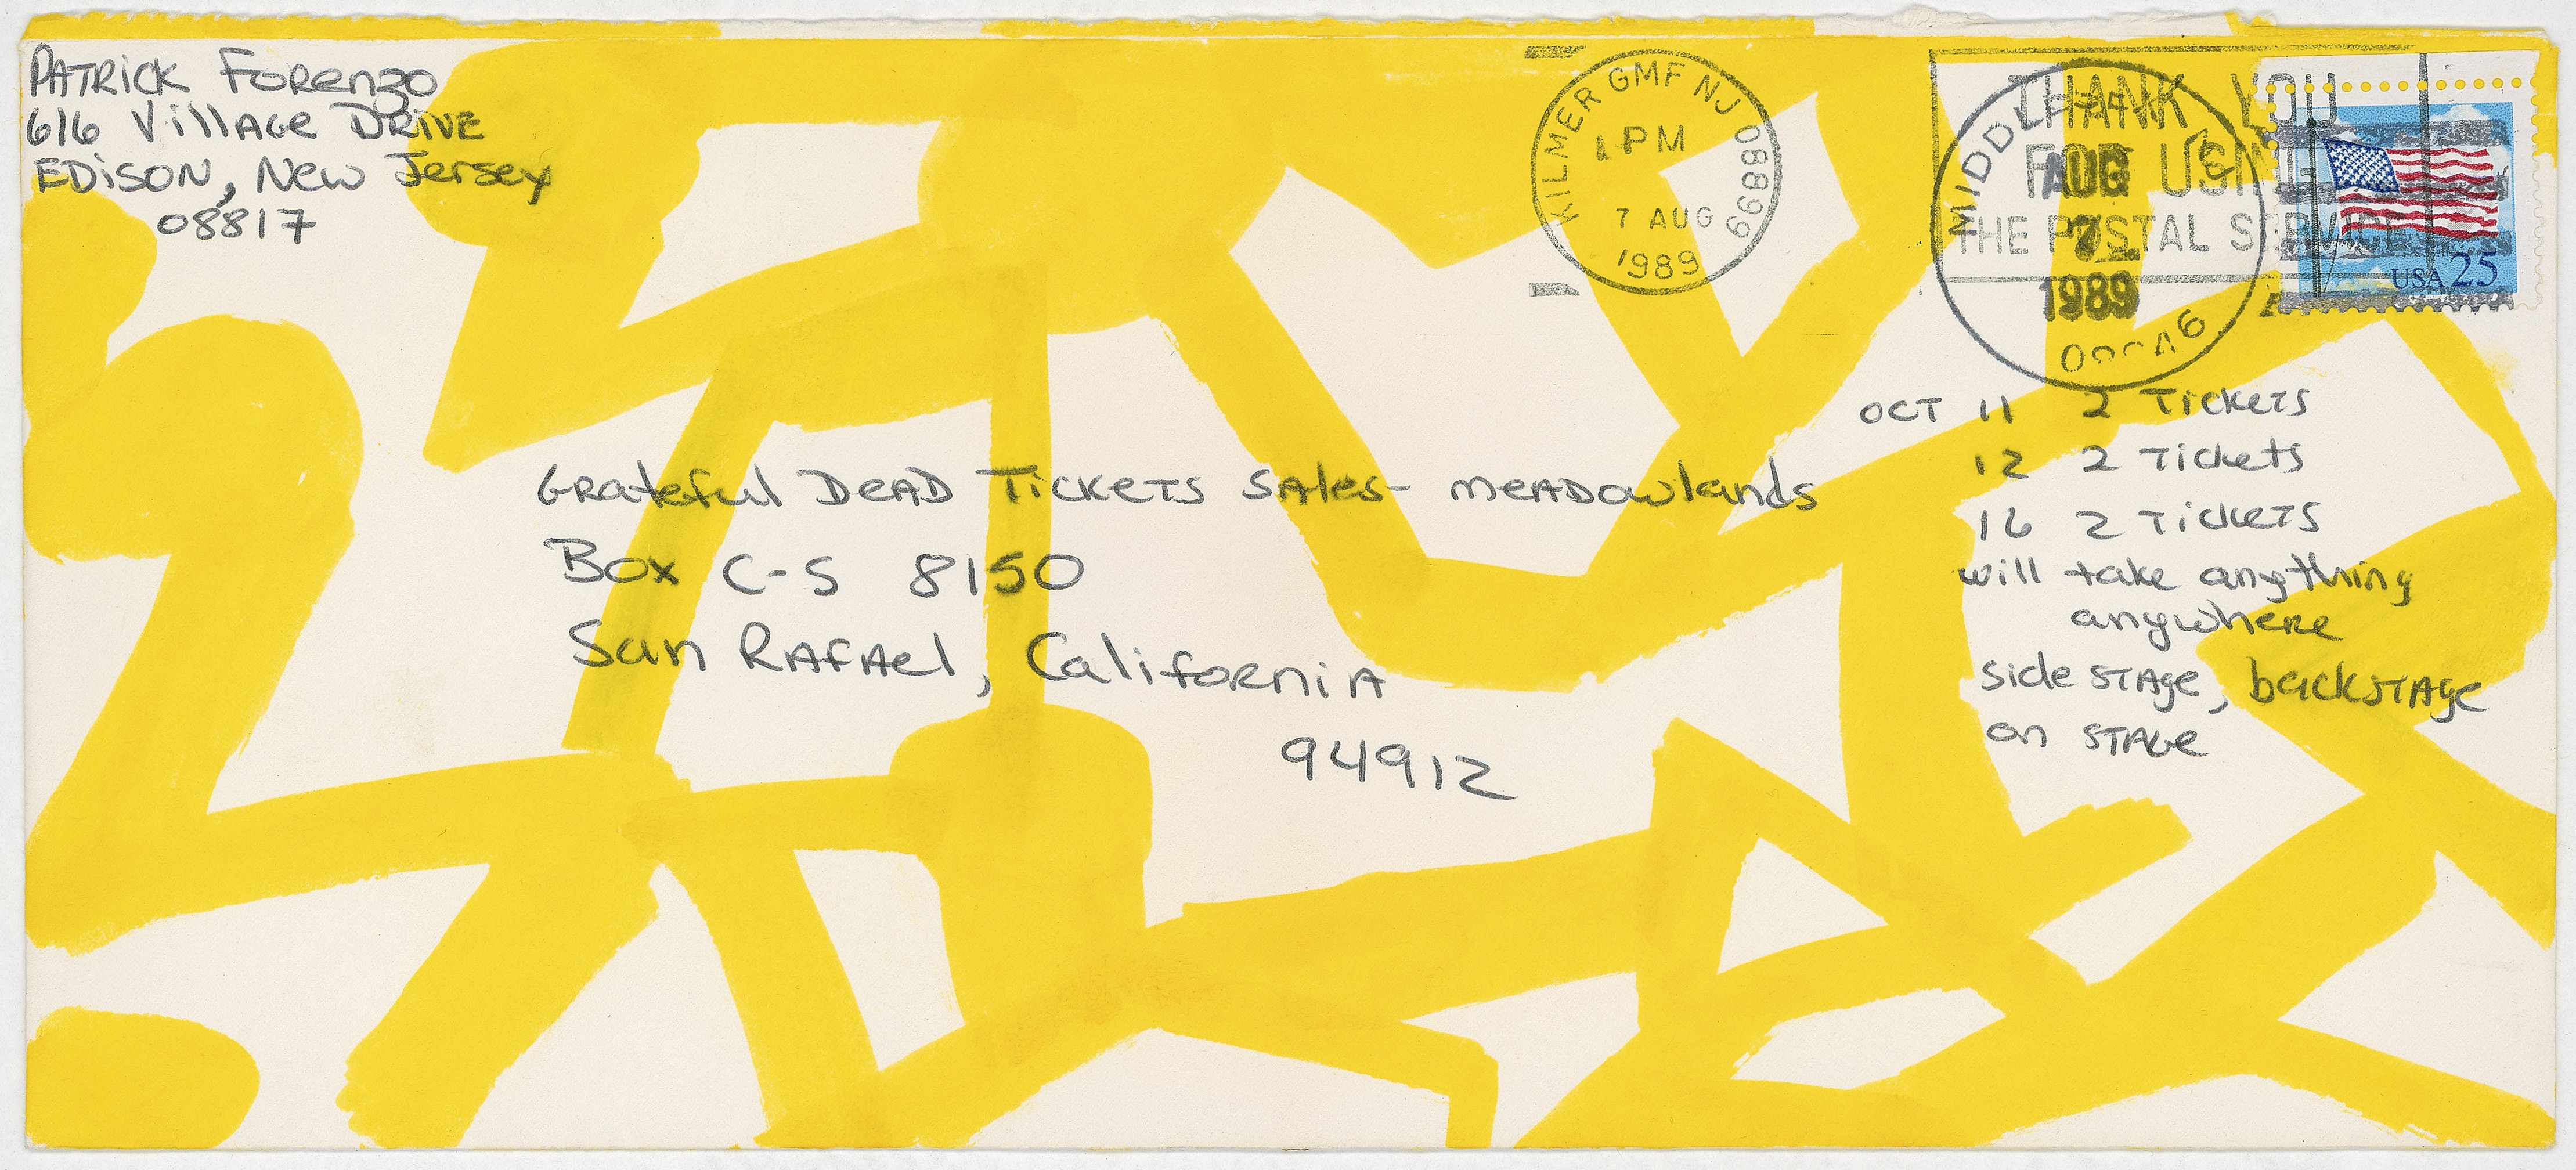 PATRICK Forenzo
616 Village DRIVE
EDISON, New Jersey
08817
KILMER GMF NJ 08899
PM
7 AUG
1989
THANK YOU
FOR USING
THE POSTAL SERVICE
AUG
7
1989
USA 25
OCT 11 2 Tickets
12 2 Tickets
16 2 Tickets
will take anything
anywhere
side stage, backstage
on stage
Grateful Dead Tickets Sales- Meadowlands
Box C-S 8150
San Rafael, California
94912